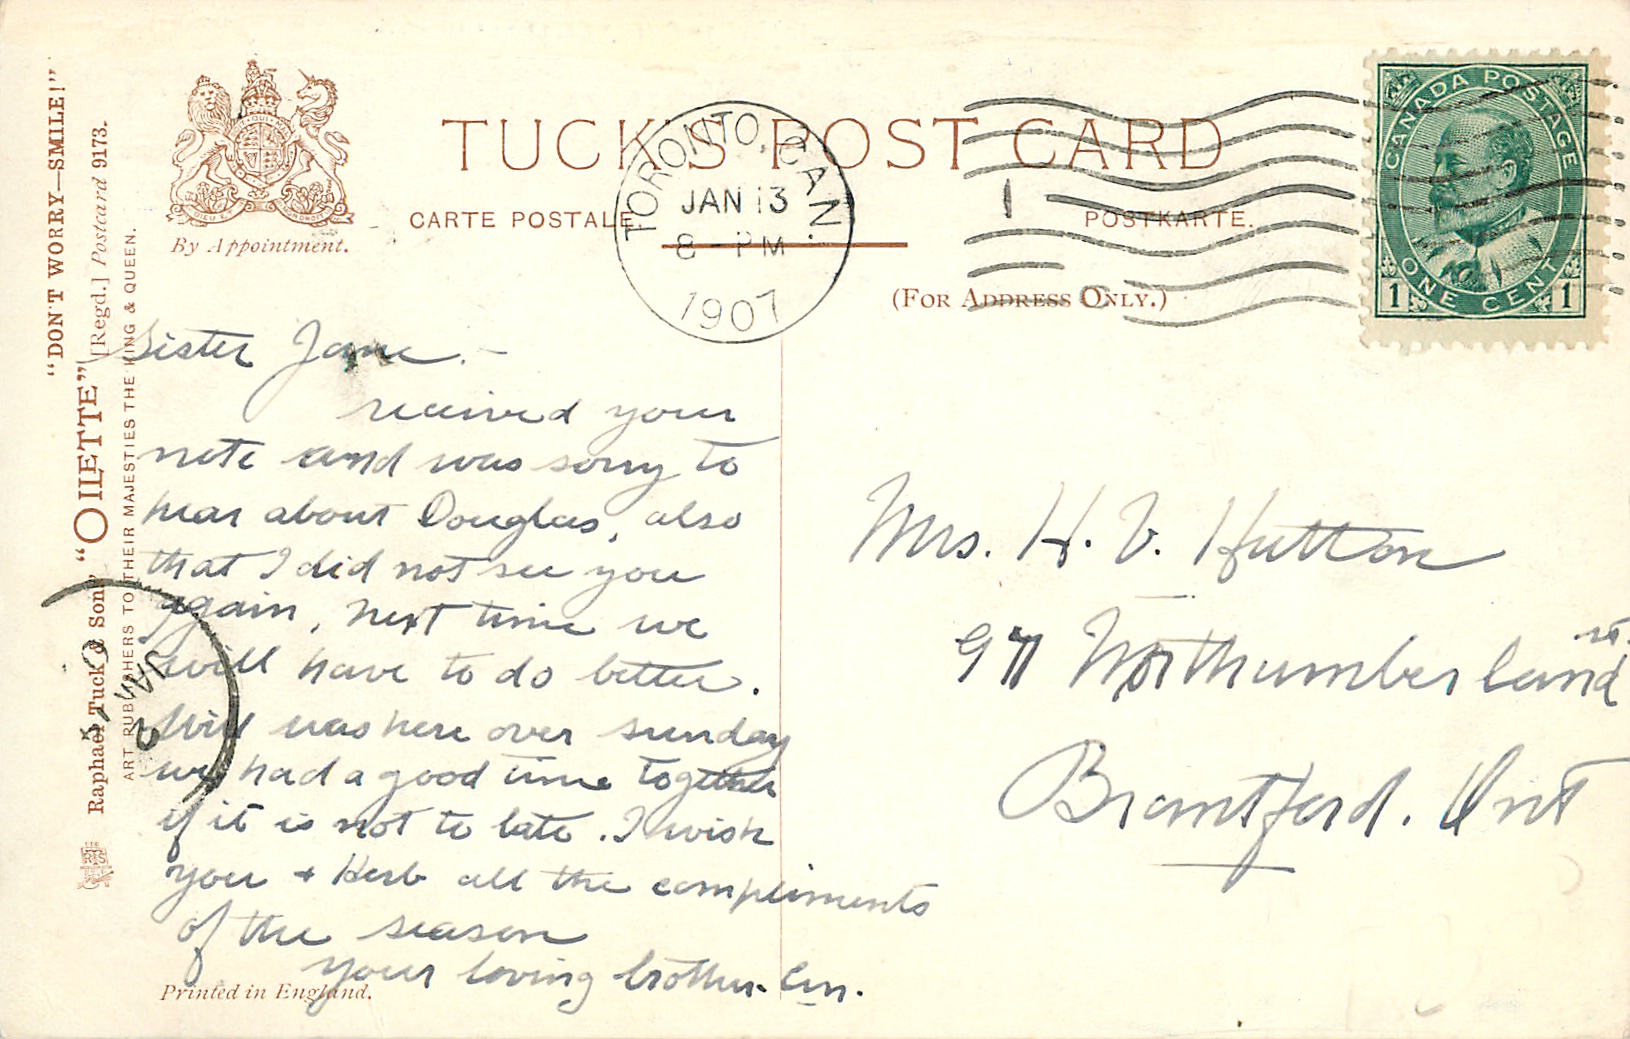 "DON'T WORRY—SMILE!"
Raphael Tuck & Sons' "OILETTE" [Regd.] Postcard 9173.
ART PUBLISHERS TO THEIR MAJESTIES THE KING & QUEEN.
By Appointment.
TUCK'S POST CARD
CARTE POSTALE
POSTKARTE.
(FOR ADDRESS ONLY.)
TORONTO, CAN.
JAN 13
8 - PM
1907
1
CANADA POSTAGE
ONE CENT
1 1
Sister Jane. -
received your
note and was sorry to
hear about Douglas, also
that I did not see you
again, next time we
will have to do better.
Will was here over sunday
we had a good time together
if it is not to late. I wish
you + Herb all the compliments
of the season
your loving brother
Printed in England.
Mrs. H. V. Hutton
97 Northumberland st.
Brantford. Ont
JAN